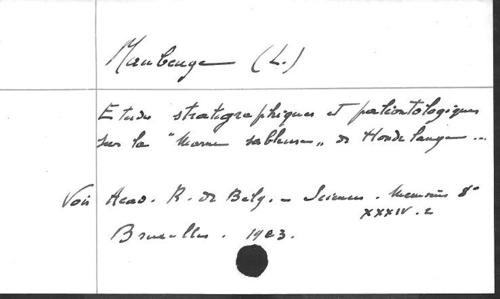 Maubeuge (L.)
Etudes stratigraphiques et paléontologiques
sur la "Marne sableuse" de Hondelange ...
Voir Acad. R. de Belg. – Sciences. Mémoires 8°
XXXIV. 2
Bruxelles. 1963.